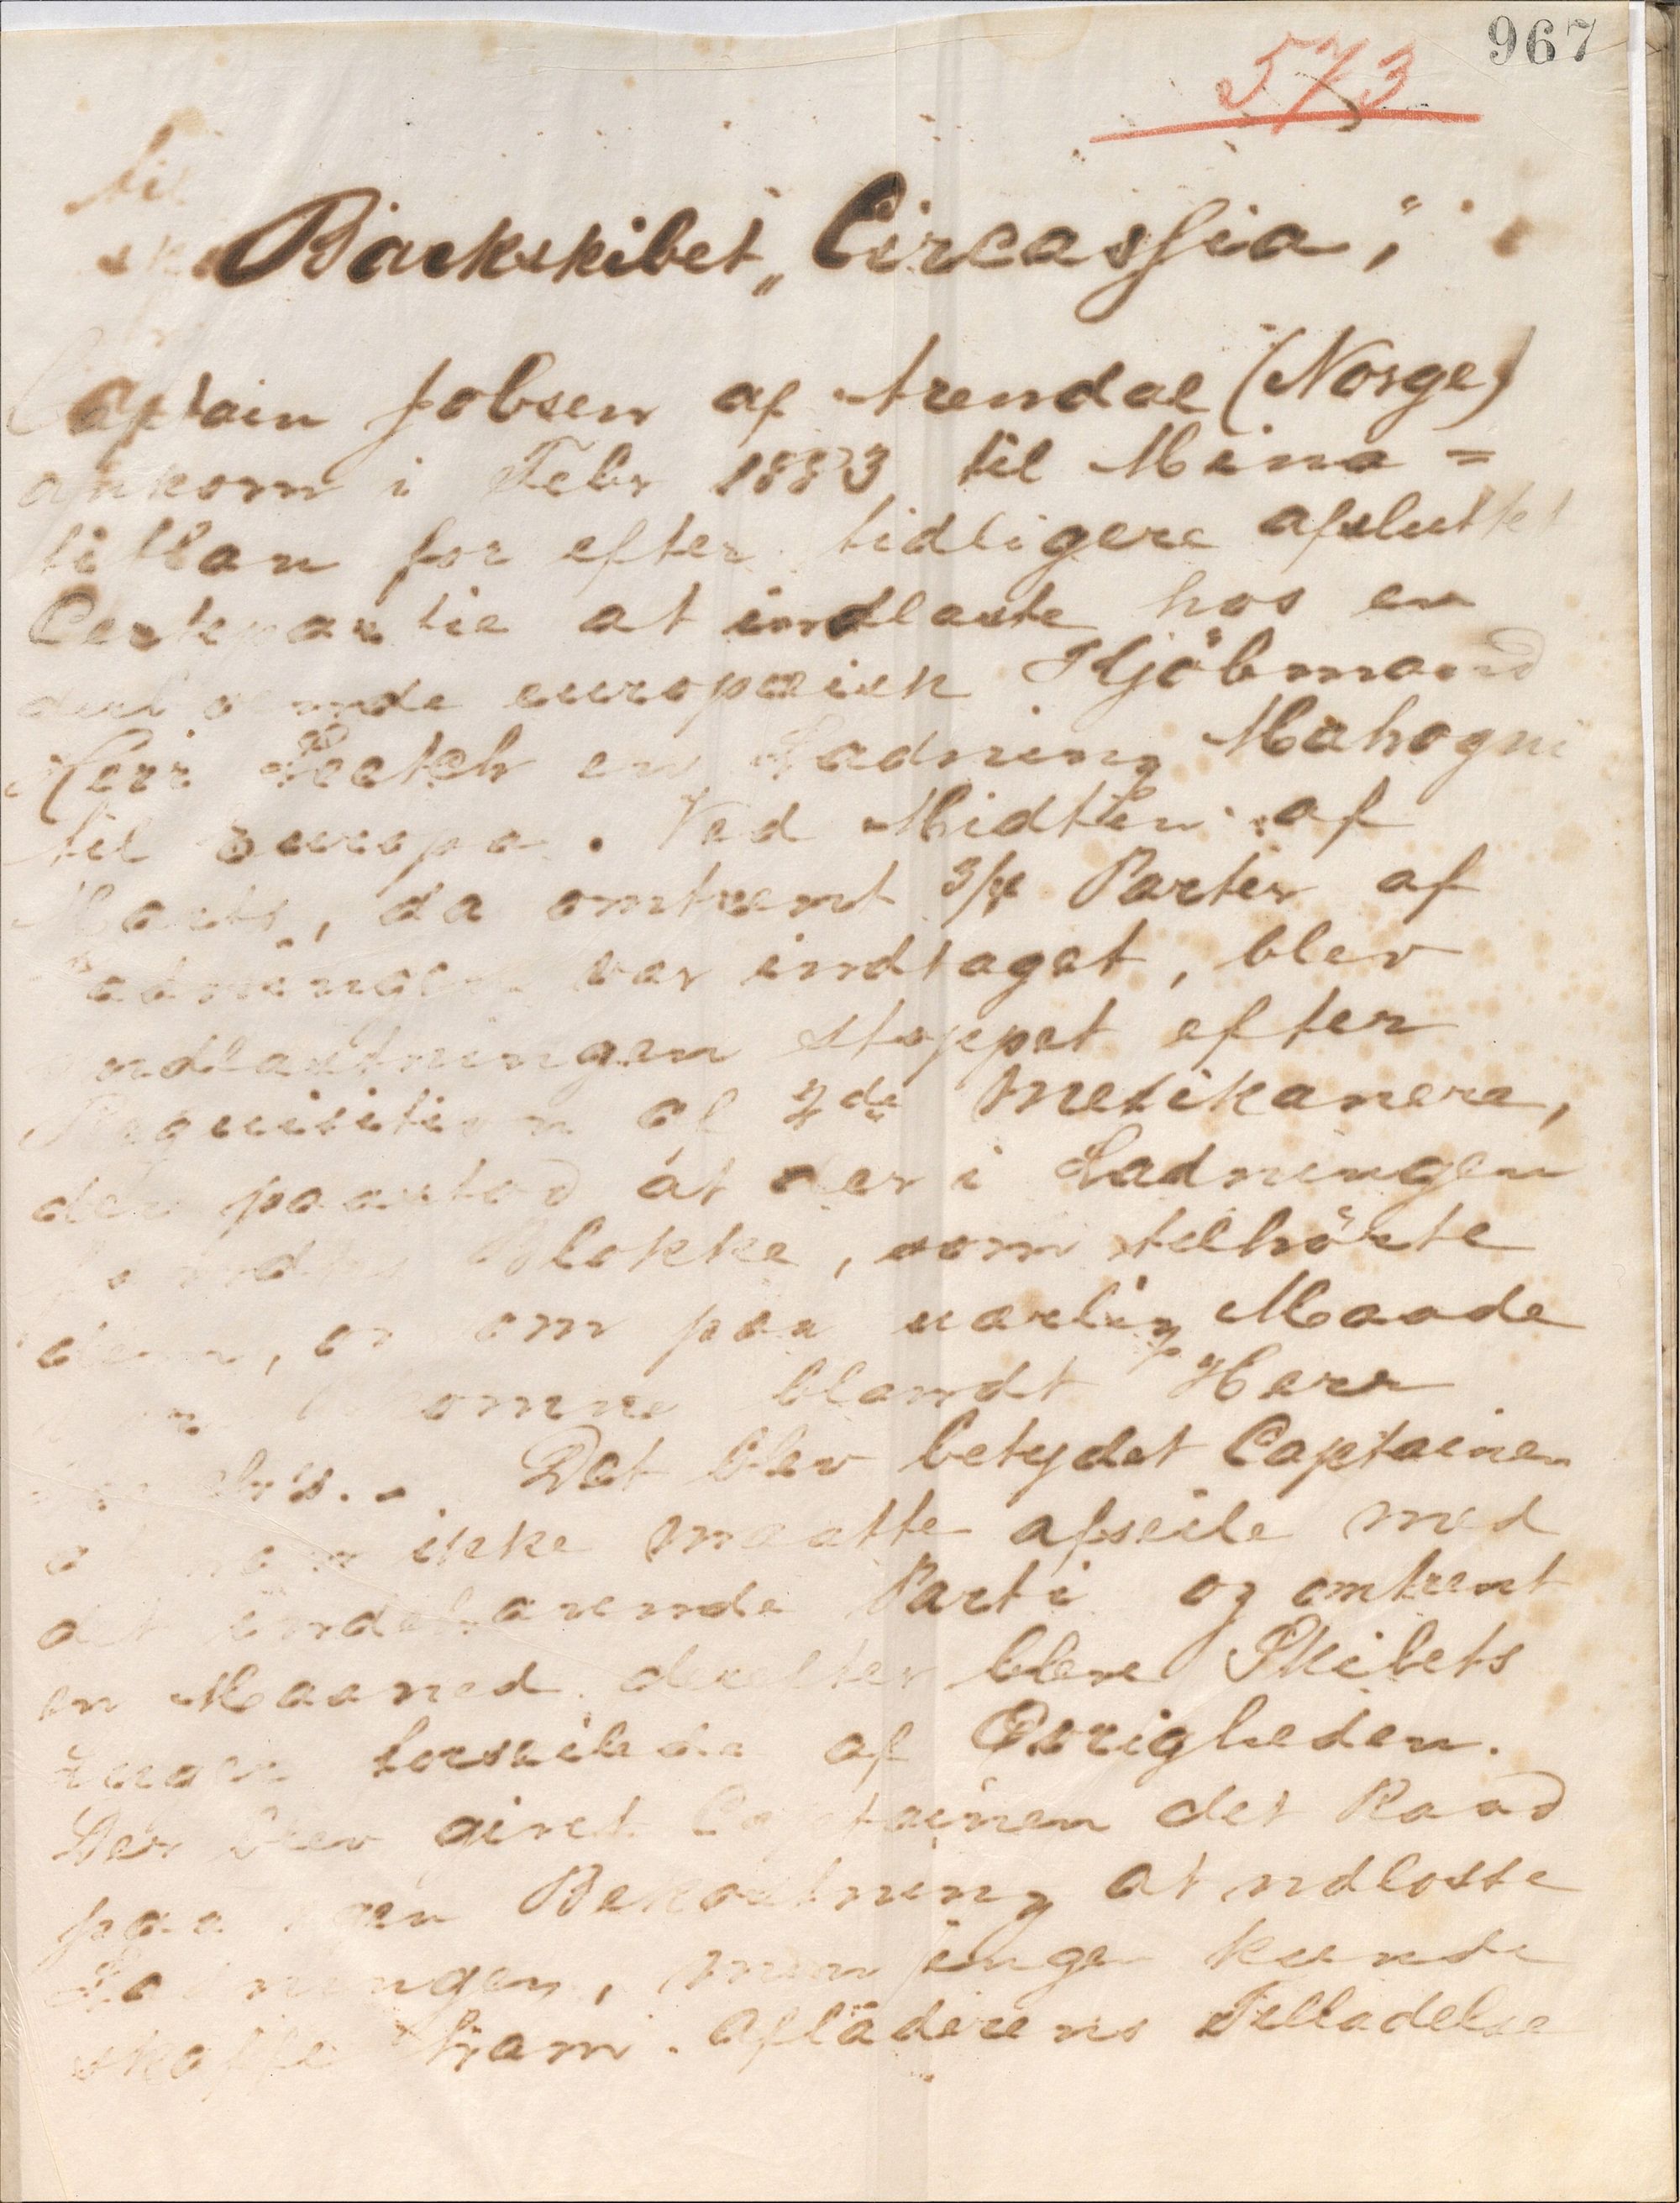 967
573
Barkskibet „Circassia",
Captain Jobsen af Arendal (Norge)
ankom i Febr 1883 til Mina =
titlan for efter tidligere afsluttet
Certepartie at indlaste hos en
europæisk Kjöbmand
Herr en Ladning Mahogni
til Europa. Ved Midten af
Marts, da omtrent 3/4 Parter af
Ladningen var indtaget, blev
Indlastningen stoppet efter
Requisition af 2de Mexikanere,
der paastod at der i Ladningen
Blokke, som tilhörte
dem, paa uærlig Maade
blandt Herr
Det blev betydet Captainen
at han ikke maatte afseile med
det indehavende Parti og omtrent
en Maaned derefter bleve Skibets
Luger forseilede af Övrigheden.
Der blev givet Captainen det Raad
paa egen Bekostning at udlosse
Ladningen, men ingen kunde
skaffe ham Afladerens Tilladelse